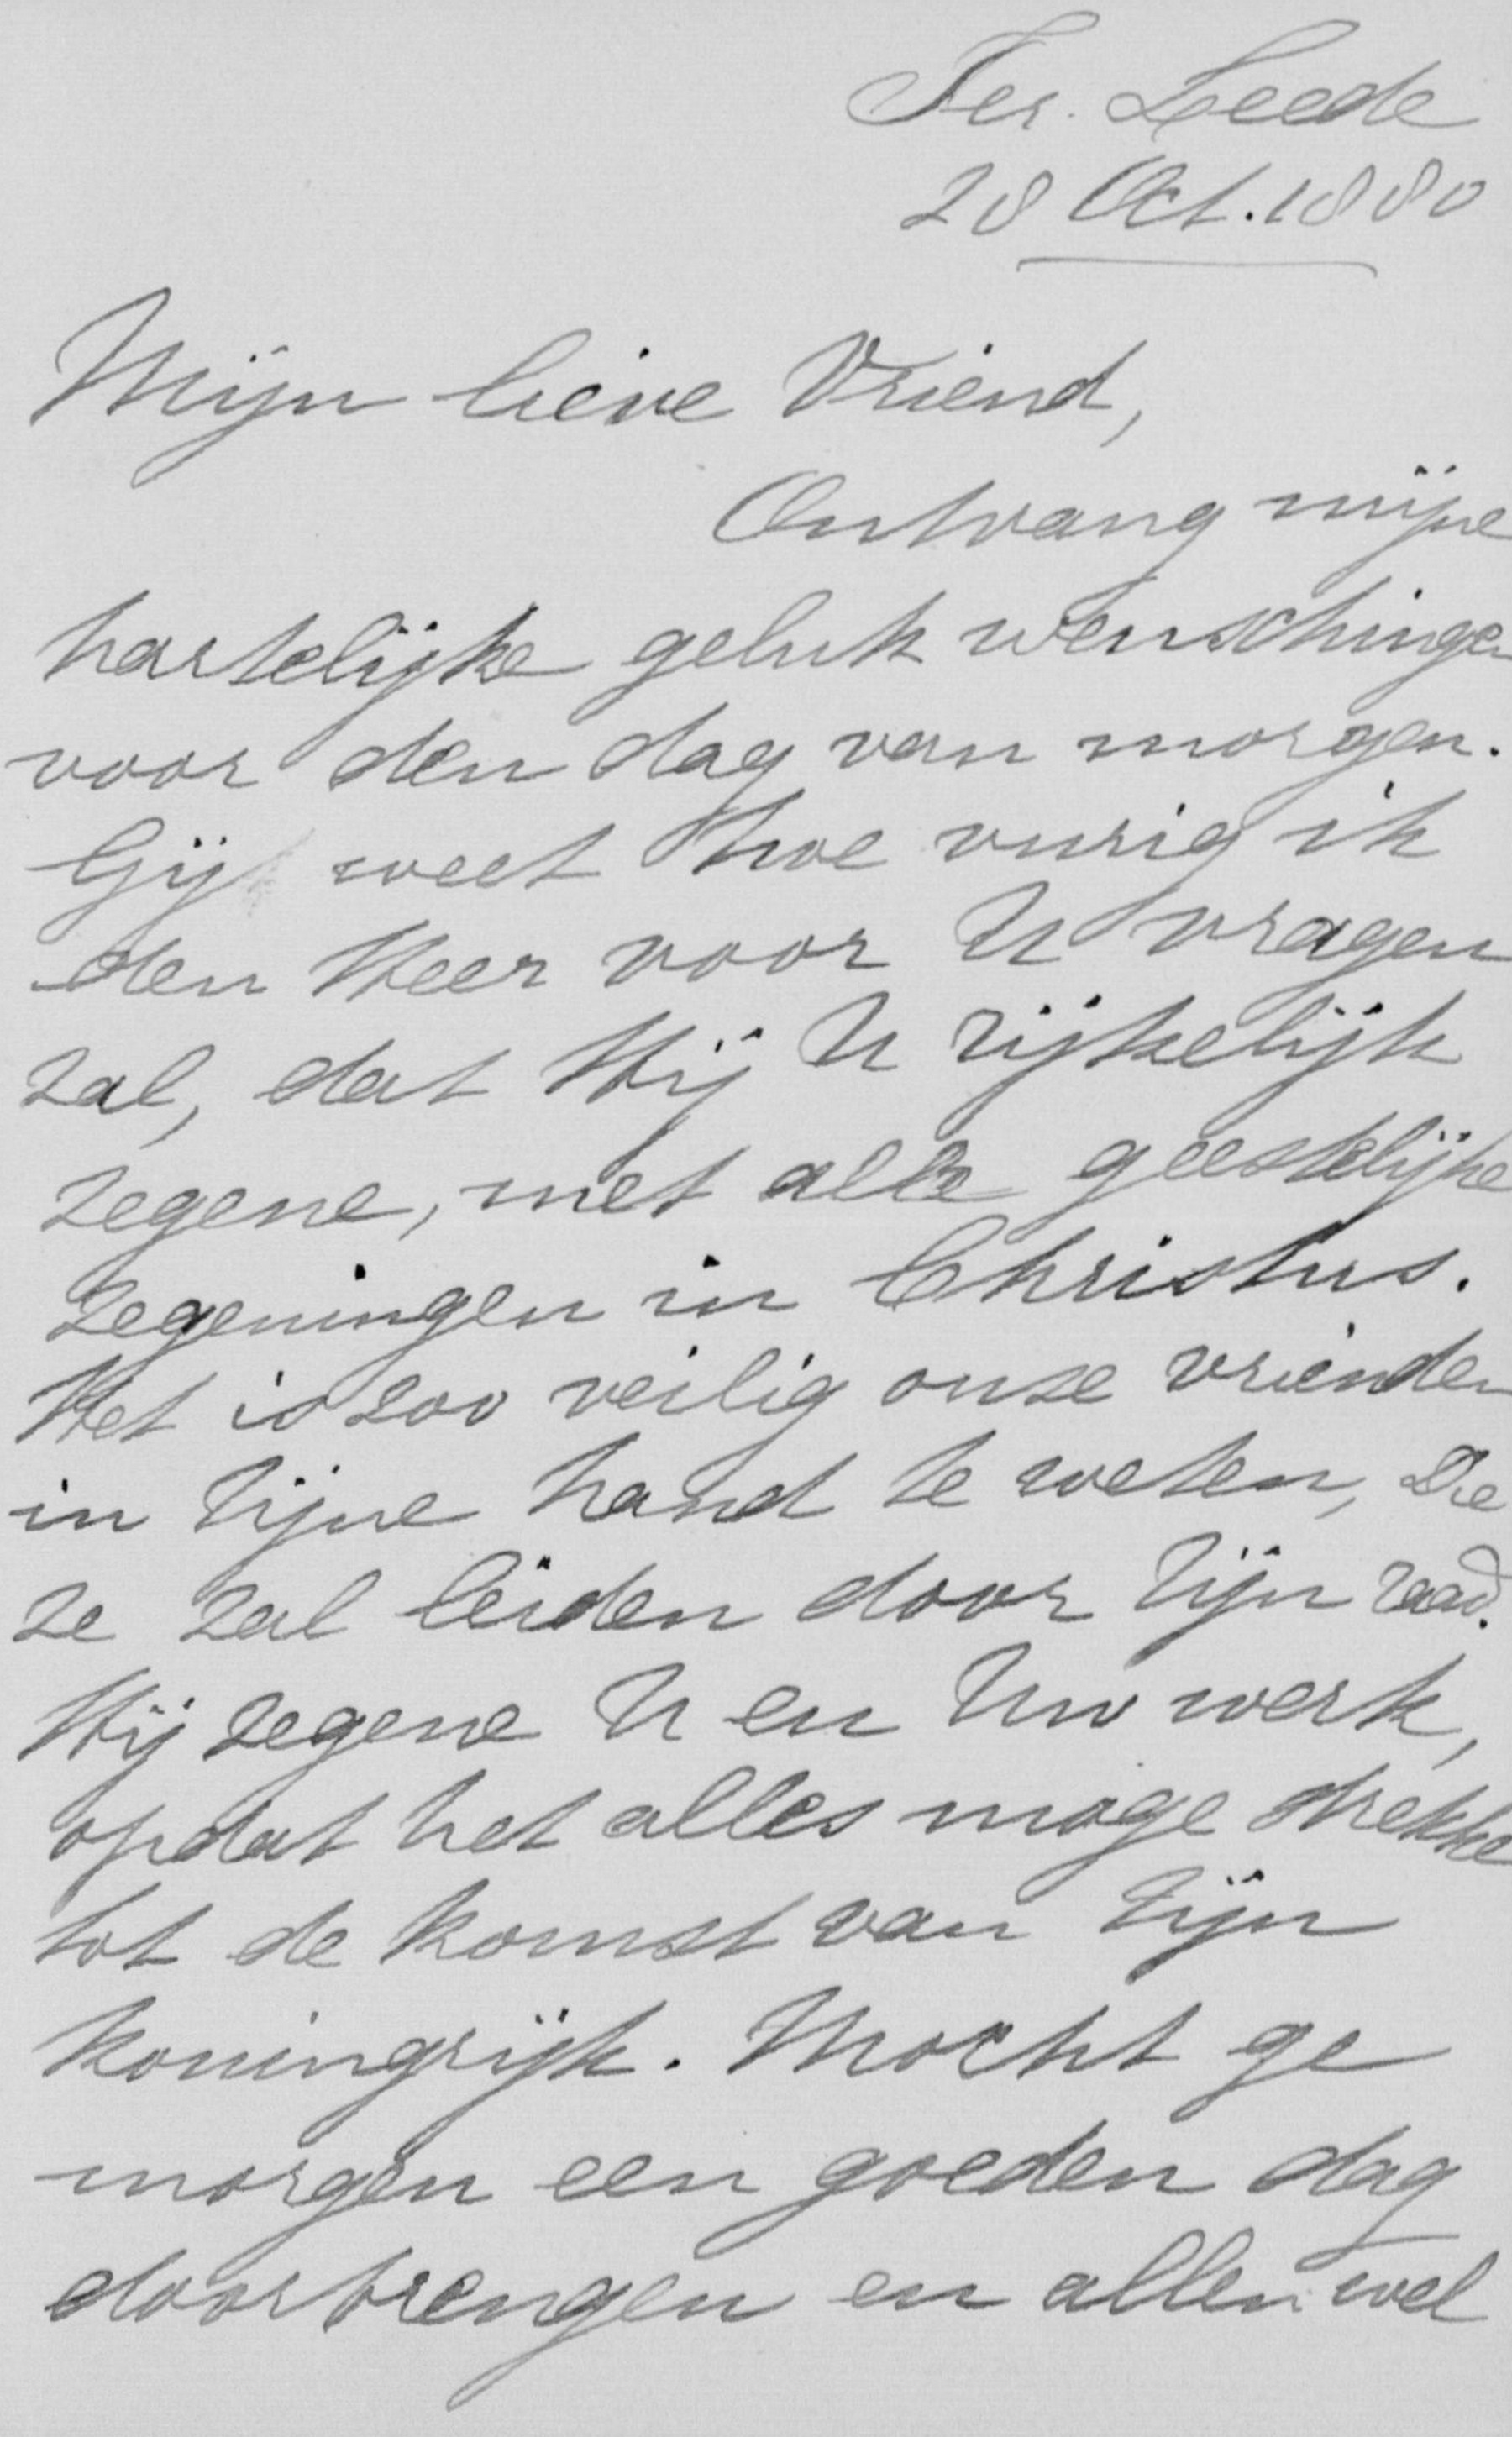 Ter. Leede
28 Oct. 1880
Mijn lieve Vriend,
Ontvang mijne
hartelijke geluk wenschingen
voor den dag van morgen.
Gij weet hoe vurig ik
den Heer voor U vragen
zal, dat Hij U rijkelijk
zegene, met alle geestelijke
zegeningen in Christus.
Het is zoo veilig onze vrienden
in Zijne hand te weten, Die
ze zal leiden door Zijn raad.
Hij zegene U en Uw werk,
opdat het alles moge strekke
tot de komst van Zijn
koningrijk. Mocht ge
morgen een goeden dag
doorbrengen en allen wel